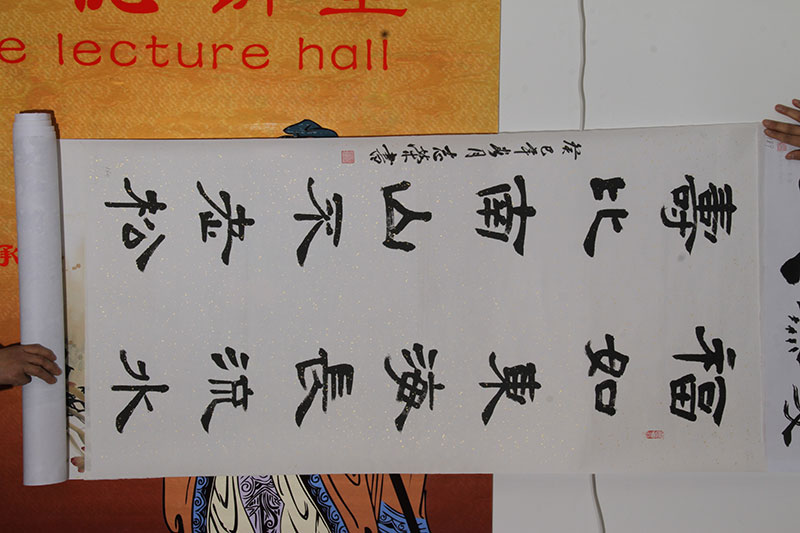 e lecture hall
福如東海長流水
壽比南山不老松
癸巳年 月志榮書
承